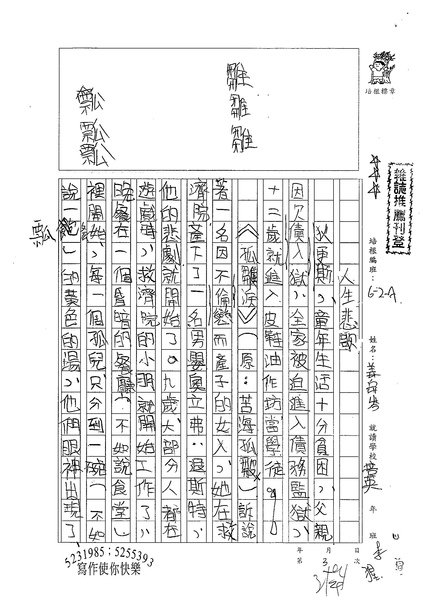 人生悲歌
狄更斯,童年生活十分貧困,父親
因欠債入獄,全家被迫進入債務監獄,
十二歲就進入皮鞋油作坊當學徒。
《孤雛淚》(原:苦海孤雛)訴說
著一名因不倫戀而產子的女人,她在救
濟院產下了一名男嬰奧立弗‧退斯特,
他的悲劇就開始了。九歲,大部分人都在
遊戲時,救濟院的小朋就開始工作了,
晚餐在一個昏暗的餐廳,不如說食堂
裡開始,每一個孤兒只分到一碗,不如
說一瓢的黃色的湯,他們眼神出現了
雛
雛
雛
瓢
瓢
瓢
瓢
培根標章
雜誌推薦刊登
培根編班:
6-2-A
姓名:
就讀學校
年
班
年
月
日
第
次
5231985;5255393
寫作使你快樂